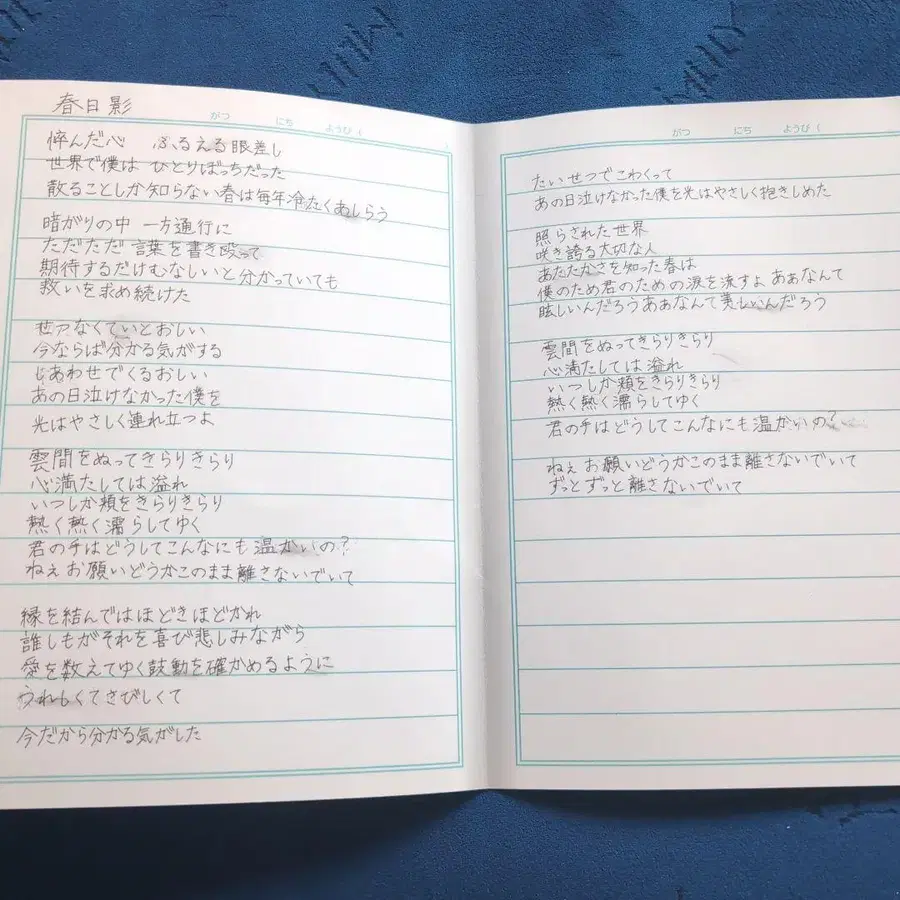 春日影
がつ にち ようび (
悴んだ心 ふるえる眼差し
世界で僕は ひとりぼっちだった
散ることしか知らない春は毎年冷たくあしらう
暗がりの中 一方通行に
ただただ 言葉を書き殴って
期待するだけむなしいと分かっていても
救いを求め続けた
せつなくていとおしい
今ならば分かる気がする
しあわせでくるおしい
あの日泣けなかった僕を
光はやさしく連れ立つよ
雲間をぬってきらりきらり
心満たしては溢れ
いつしか頬をきらりきらり
熱く熱く濡らしてゆく
君の手はどうしてこんなにも温かいの?
ねぇお願いどうかこのまま離さないでいて
縁を結んではほどきほどかれ
誰しもがそれを喜び悲しみながら
愛を数えてゆく鼓動を確かめるように
うれしくてさびしくて
今だから分かる気がした
がつ にち ようび (
たいせつでこわくって
あの日泣けなかった僕を光はやさしく抱きしめた
照らされた世界
咲き誇る大切な人
あたたかさを知った春は
僕のため君のための涙を流すよ ああなんて
眩しいんだろうああなんて美しいんだろう
雲間をぬってきらりきらり
心満たしては溢れ
いつしか頬をきらりきらり
熱く熱く濡らしてゆく
君の手はどうしてこんなにも温かいの?
ねぇお願いどうかこのまま離さないでいて
ずっとずっと離さないでいて